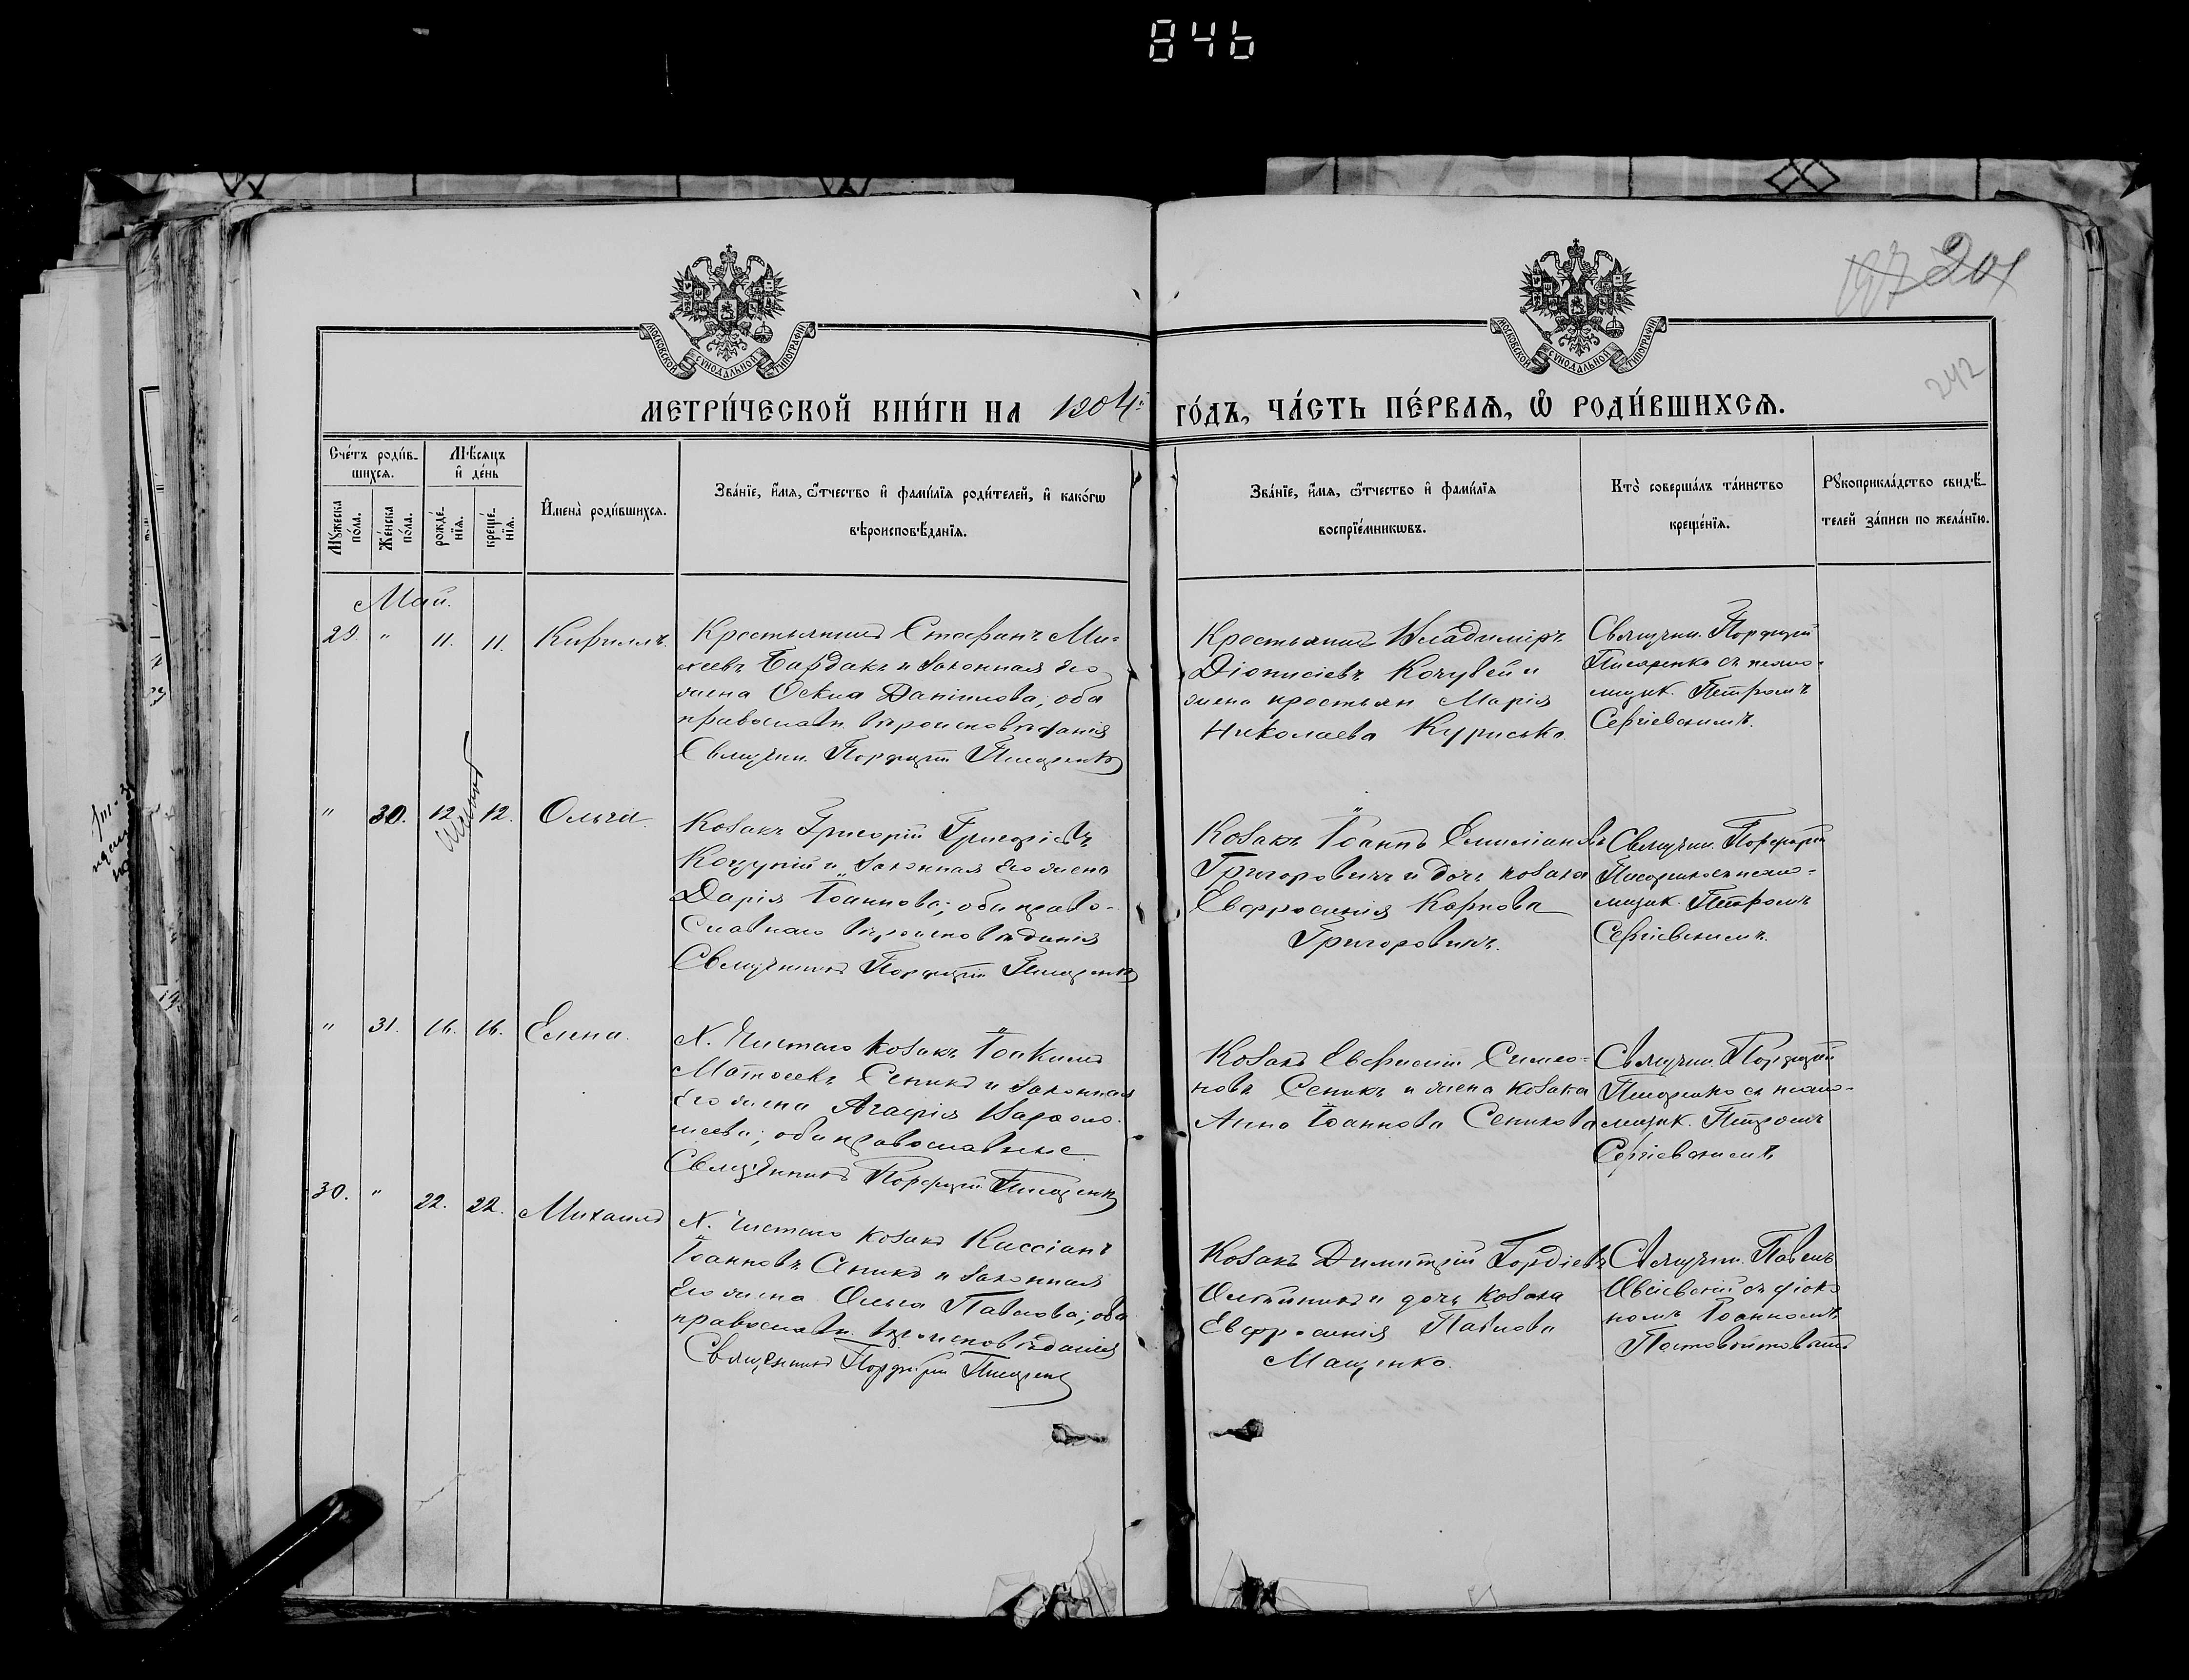 846
МОСКОВСКОЙ СУНОДАЛЬНОЙ ТИПОГРАФІИ
МОСКОВСКОЙ СУНОДАЛЬНОЙ ТИПОГРАФІИ
197 201
242
МЕТРИ́ЧЕСКОЙ КНИ́ГИ НА 1904 ГО́ДЪ, ЧА́СТЬ ПЕ́РВАЯ, Ѡ҆ РОДИ́ВШИХСЯ.
Сче́тъ роди́в-
шихся.
Мѣ́сяцъ
и҆ де́нь
Мꙋ́жеска по́ла.
Же́нска по́ла.
рожде́-
нїя.
креще́-
нїя.
И҆мена̀ роди́вшихся.
Зва́нїе, и҆́мя, ѻ҆́тчество и҆ фами́лїя роди́телей, и҆ како́гѡ
вѣроисповѣ́данїя.
Зва́нїе, и҆́мя, ѻ҆́тчество и҆ фами́лїя
воспрїе́мникѡвъ.
Кто̀ соверша́лъ та́инство
креще́нїя.
Рꙋкоприкла́дство свидѣ́-
телей за́писи по жела́нїю.
Май.
29. " 11. 11. Кириллъ.
Крестьянинъ Стефанъ Ми-
хеевъ Бардакъ и законная его
жена Данiилова; оба
православн. вѣроисповѣданія
Священн. Порфирій Писаренко
Крестьянинъ Владиміръ
Діонисіевъ Кочубей и
жена крестьян Марія
Николаева
Священн. Порфирій
Писаренко съ псало-
мщик. Петромъ
Сергіевскимъ.
" 30. 12. 12. Ольга.
Козакъ Григорій Григоріевъ
и законная его жена
Дарія Іоаннова; оба право-
славнаго вѣроисповѣданія
Священникъ Порфирій Писаренко
Козакъ Іоаннъ Емиліановъ
Григоровичъ и дочь козака
Евфросинія Карпова
Григоровичъ.
Священн. Порфирій
Писаренко съ псало-
мщик. Петромъ
Сергіевскимъ.
" 31. 16. 16. Елена.
Х. Чистаго козакъ Іоакимъ
Матѳеевъ Сеникъ и законная
его жена Агафія Варфоло-
меева; оба православные
Священникъ Порфирій Писаренко
Козакъ Симео-
новъ Сеникъ и жена козака
Анна Іоаннова Сеникова
Священн. Порфирій
Писаренко съ псало-
мщик. Петромъ
Сергіевскимъ
30. " 22. 22. Михаилъ
Х. Чистаго козакъ Кассіанъ
Іоанновъ и законная
его жена Ольга Павлова; оба
православн. вѣроисповѣданія
Священникъ Порфирій Писаренко
Козакъ Димитрій Гордіевъ
Олейникъ и дочь козака
Евфросинія Павлова
Мащенко.
Священн. Павелъ
съ діако-
номъ Іоанномъ